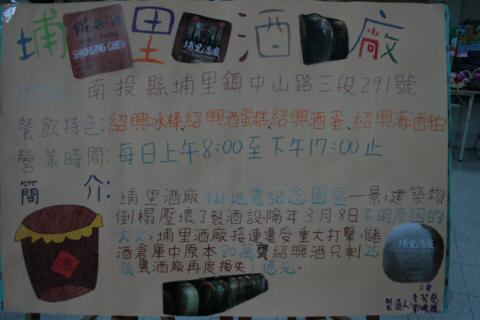 埔里酒廠
紹興酒
SHAOHSING CHIEW
埔里酒廠
地址:南投縣埔里鎮中山路三段291號
餐飲特色:紹興冰棒、紹興酒蛋糕、紹興酒蛋、紹興清酒粕
營業時間:每日上午8:00至下午17:00止
簡介:埔里酒廠921地震紀念園區一景,建築物
倒榻壓壞了製酒設,隔年3月8日不明原因的
大火,埔里酒廠接連遭受重大打擊,儲
酒倉庫中原本30萬甕紹興酒只剩25
萬甕酒廠再度損失1億元。
酒
埔里酒廠